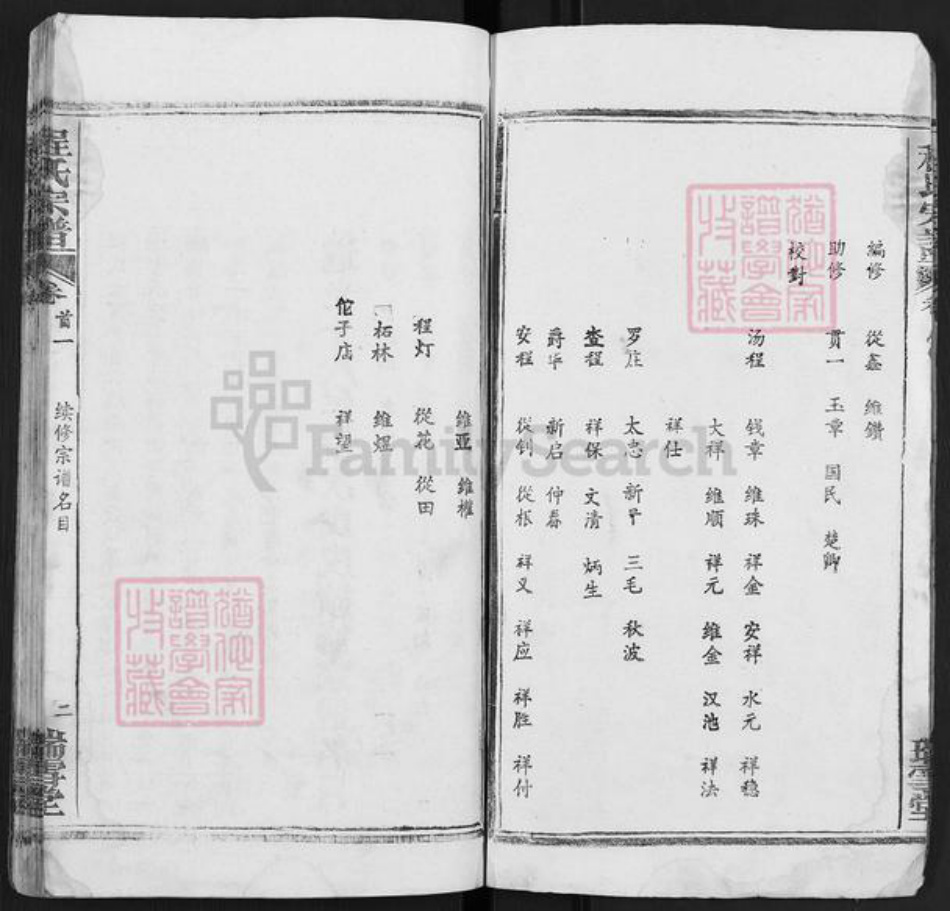 編修 從鑫 維鑽
助修 贯一 玉章 国民 楚卿
校對
汤程 钱章 維珠 祥金 安祥 水元 祥穏
大祥 維顺 祥元 維金 汉池 祥法
祥仕
罗庄 太忠 新早 三毛 秋波
查程 祥保 文清 炳生
爵华 新启 仲春
安程 從钊 從根 祥义 祥应 祥胜 祥付
維亚 維權
程灯 從花 從田
柘林 維煜
佗子店 祥望
程氏宗譜 卷首一 续修宗谱名目 二
猶他家譜學會收藏
猶他家譜學會收藏
FamilySearch